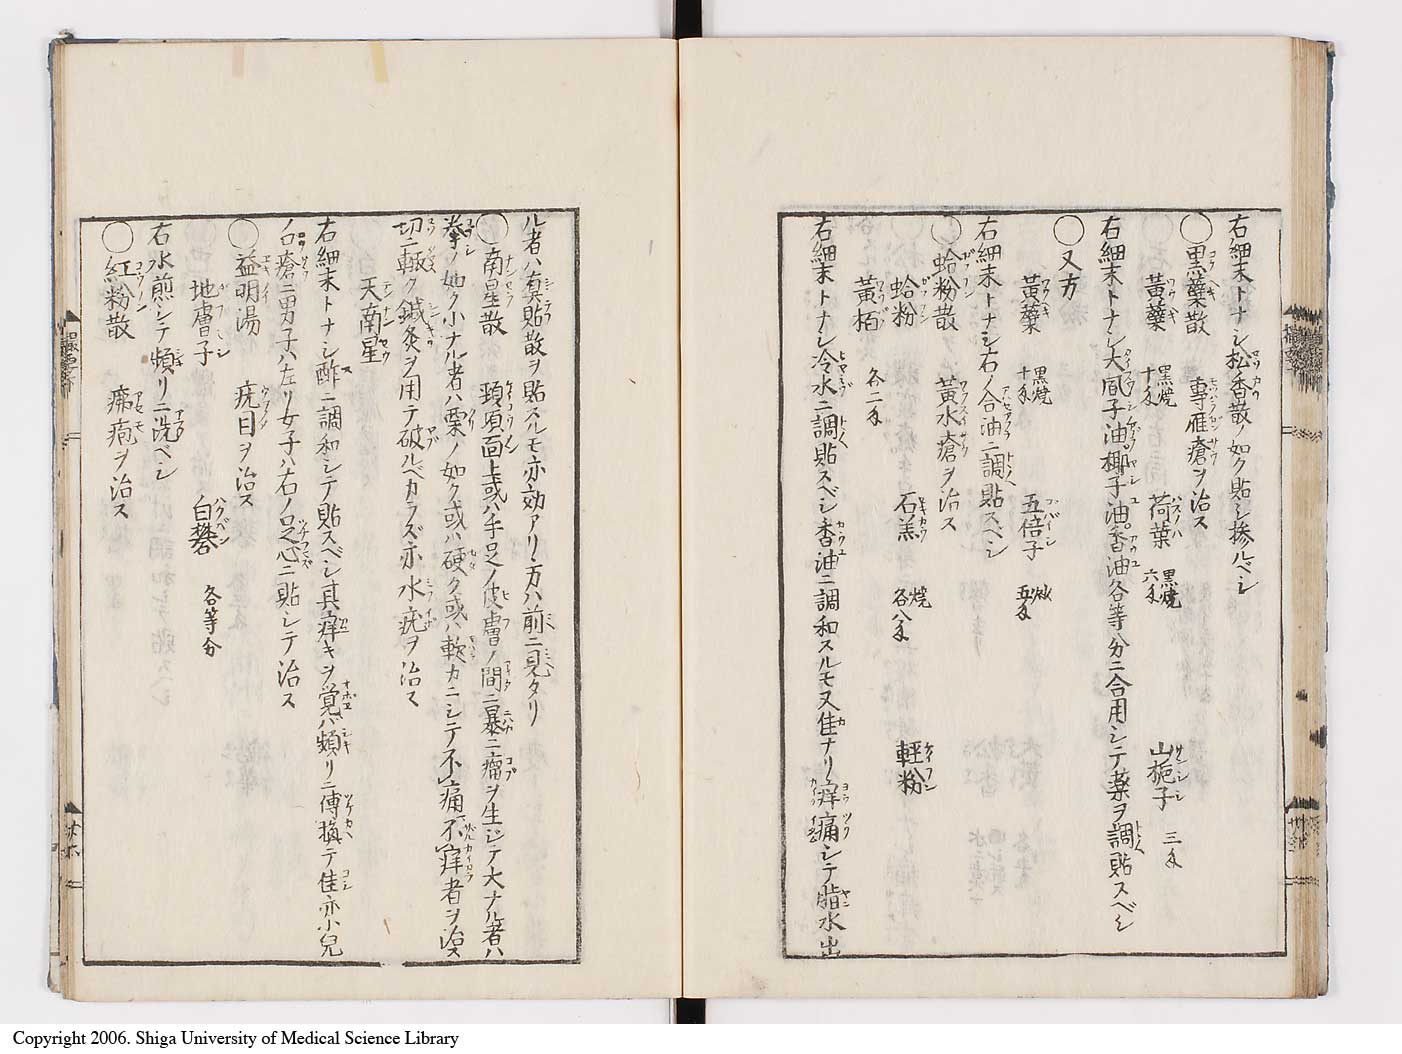 右細末トナシ松香散ノ如ク貼シ摻ルベシ
◯黒蘗散 専雁瘡ヲ治ス
黄蘗 黒焼 十匁 荷葉 黒焼 六匁 山梔子 三匁
右細末トナシ大風子油椰子油香油各等分ニ合用シテ薬ヲ調貼スベシ
◯又方
黄蘗 黒焼 十匁 五倍子 炒 五匁
右細末トナシ右ノ合油ニ調貼スベシ
◯蛤粉散 黄水瘡ヲ治ス
蛤粉 石羔 焼 各八匁 軽粉
黄栢 各二匁
右細末トナシ冷水ニ調貼スベシ香油ニ調和スルモ又佳ナリ痒痛シテ脂水出
ル者ハ真貼散ヲ貼スルモ亦効アリ方ハ前ニ見タリ
◯南星散 頚項面上或ハ手足ノ皮膚ノ間ニ暴ニ瘤ヲ生ジテ大ナル者ハ
拳ノ如ク小ナル者ハ栗ノ如ク或ハ硬ク或ハ軟カニシテ不痛不痒者ヲ治ス
切ニ輙ク鍼灸ヲ用テ破ルベカラズ亦水疣ヲ治ス
天南星
右細末トナシ酢ニ調和シテ貼スベシ其痒キヲ覚ハ頻リニ傅換テ佳亦小児
ノ口瘡ニ男子ハ左リ女子ハ右ノ足心ニ貼シテ治ス
◯益明湯 疣目ヲ治ス
地膚子 白礬 各等分
右水煎シテ頻リニ洗ベシ
◯紅粉散 疿疱ヲ治ス
Copyright 2006. Shiga University of Medical Science Library